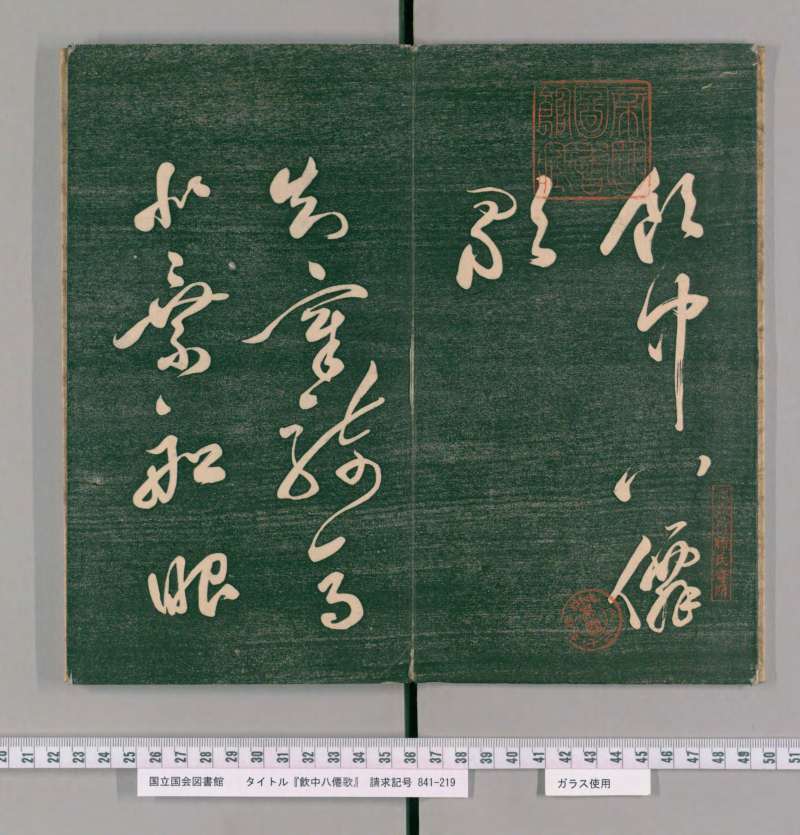 飲中八僊
歌
知章騎馬
似乘船眼
20 21 22 23 24 25 26 27 28 29 30 31 32 33 34 35 36 37 38 39 40 41 42 43 44 45 46 47 48 49 50 51
国立国会図書館 タイトル『飲中八僊歌』 請求記号 841-219
ガラス使用